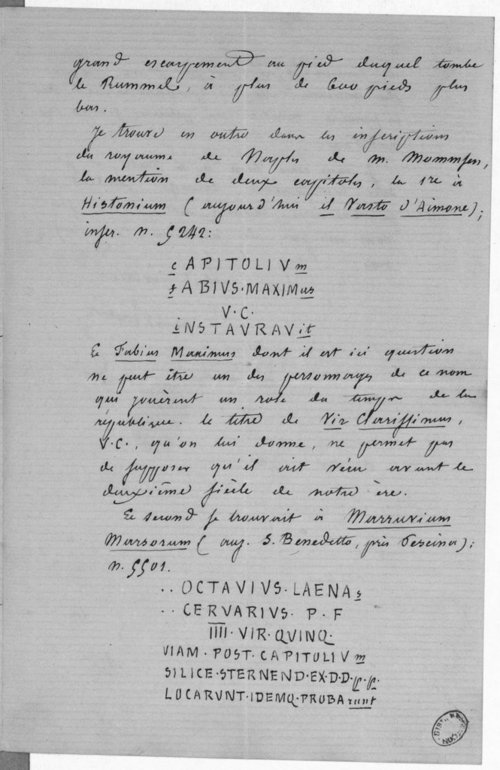 grand escarpement au pied duquel tombe
le Rummel, à plus de 600 pieds plus
bas.
Je trouve en outre dans les inscriptions
du royaume de Naples de M. Mommsen,
la mention de deux capitoles, la 1re à
Histonium ( aujourd'hui il Vasto d'Aimone);
inscr. n. 5242:
cAPITOLIVm
fABIVS·MAXIMus
V·C·
iNSTAVRAVit
Ce Fabius Maximus dont il est ici question
ne peut être un des personnages de ce nom
qui jouèrent un rôle du temps de la
république. le titre de Vir Clarissimus,
V.C., qu'on lui donne, ne permet pas
de supposer qu'il ait vécu avant le
deuxième siècle de notre ère.
Le second se trouvait à Marruvium
Marsorum ( auj. S. Benedetto, près Pescina);
n. 5501.
·· OCTAVIVS·LAENAs
·· CERVARIVS· P·F
IIII·VIR·QVINQ·
VIAM·POST·CAPITOLIVm
SILICE·STERNEND·EX·D·D·
LOCARVNT·IDEMQ·PROBArunt